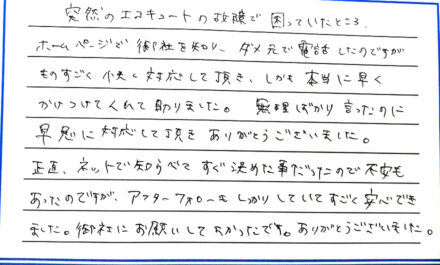 突然のエコキュートの故障で困っていたところ、
ホームページで御社を知り、ダメ元で電話したのですが
ものすごく快く対応して頂き、しかも本当に早く
かけつけてくれて助りました。無理ばかり言ったのに
早急に対応して頂きありがとうございました。
正直、ネットで知らべてすぐ決めた事だったので不安も
あったのですが、アフターフォローもしっかりしていてすごく安心でき
ました。御社にお願いしてよかったです。ありがとうございました。